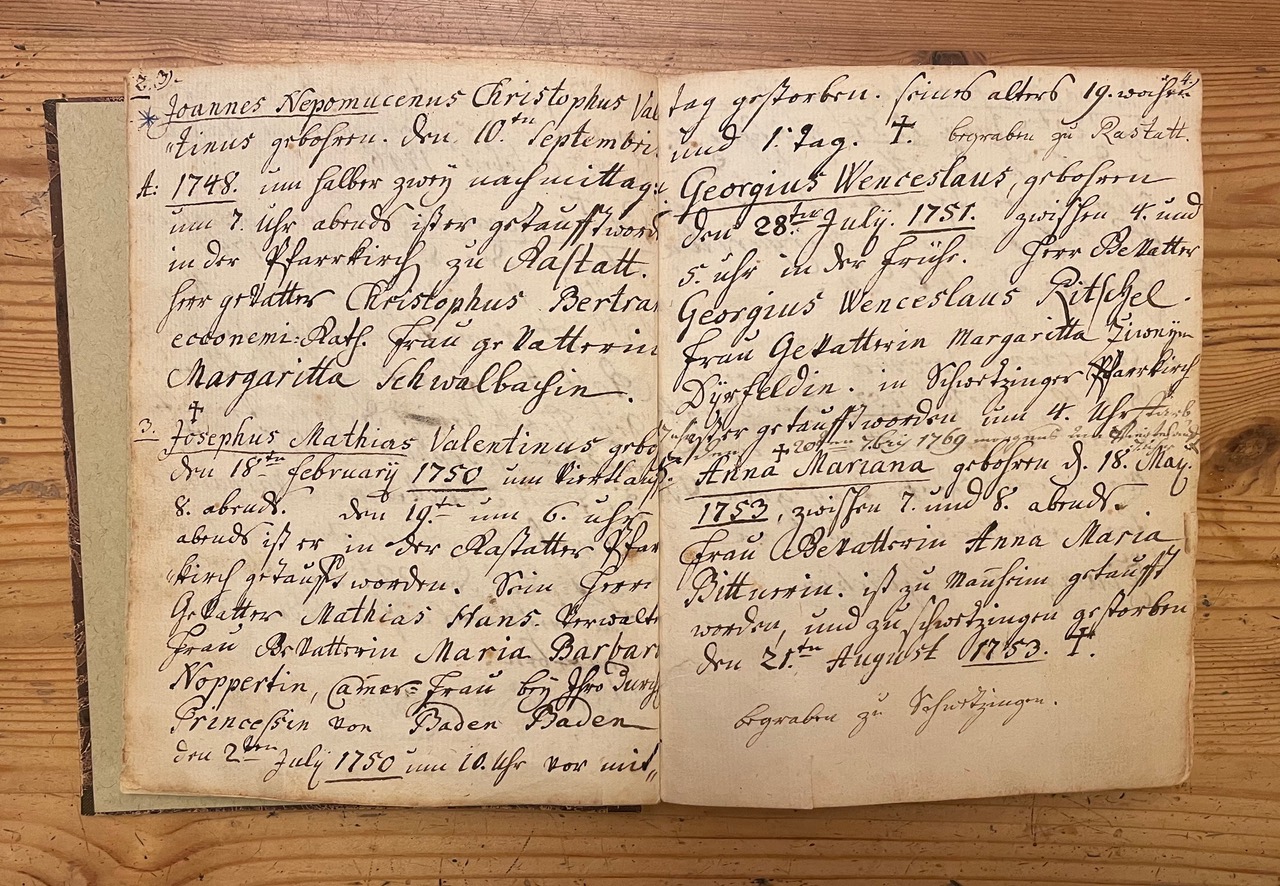 2. 3).
Joannes Nepomucenus Christophus Val
tinus gebohren. den 10.ten Septembri
A: 1748. um halber zweÿ nachmittag:
um 7. Uhr abends ist er getaufft word
in der Pfarrkirch zu Rastatt.
Herr gevatter Christophus Bertra
econemi: Rath. Frau gevatterin
Margaritta Schwalbachin.
✝
3. Josephus Mathias Valentinus gebo
den 18ten februarÿ 1750 um viertl auf
8. abends. den 19.ten um 6. uhr
abends ist er in der Rastatter Pfar
kirch getaufft worden. Sein Herr
Gevatter Mathias Hans. Verwalt
Frau Gevatterin Maria Barbar
Noppertin, Camer-Frau beÿ Ihro Durch
Princessin von Baden Baden
den 2ten Julÿ 1750 um 10. Uhr vor mit
4.
tag gestorben. seines alters 19. wochen
und 1. tag. ✝. begraben zu Rastatt.
Georgius Wenceslaus, gebohren
den 28ten Julÿ. 1751. zwischen 4. und
5. uhr in der Frühe. Herr Gevatter
Georgius Wenceslaus Ritschel.
Frau Gevatterin Margaritta
Dÿrfeldin. in Schwetzinger Pfarrkirch
ist er getaufft worden um 4. Uhr starb
✝ 20ten 7bris 1769 morgens um
Anna Mariana gebohren d. 18. Maÿ.
1753, zwischen 7. und 8. abends.
Frau Gevatterin Anna Maria
Bittnerin. ist zu Manheim getaufft
worden, und zu schwetzingen gestorben
den 21.ten August 1753. ✝.
begraben zu Schwetzingen.